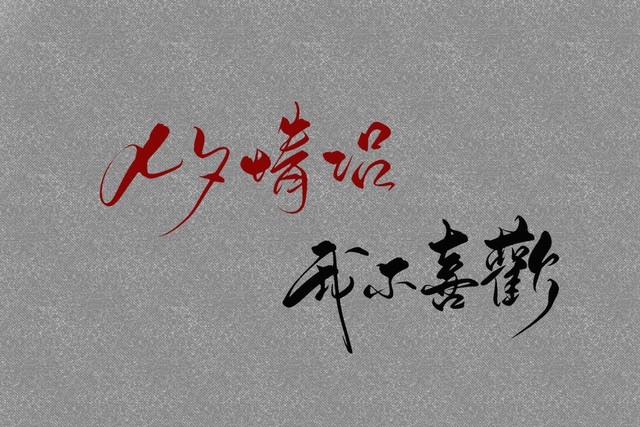 七夕情侣
我不喜歡